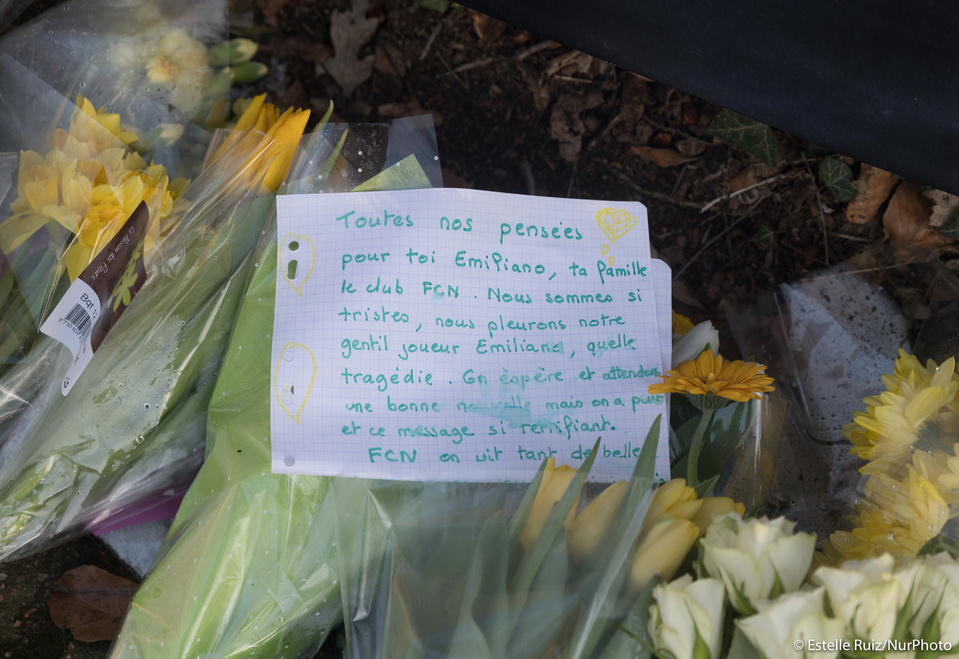 Toutes nos pensées
pour toi Emipiano, ta pamille
le club FCN. Nous sommes si
tristes, nous pleurons notre
gentil joueur Emiliano, quelle
tragédie. On espère et attendons
une bonne mais on a peur
et ce message si terrifiant.
FCN on vit tant de belle
La Maison des Fleurs
Bqt
© Estelle Ruiz/NurPhoto